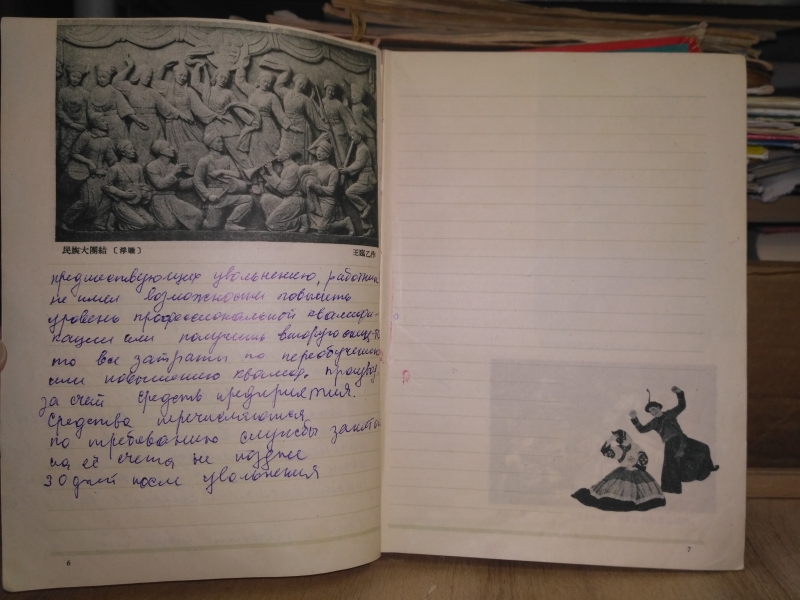 民族大團結 〔浮雕〕 王臨乙作
предшествующих увольнению, работник
не имел возможности повысить
уровень профессиональной квалифи-
кации или получить вторую
то все затраты по переобучению
или повышению квалиф. производ.
за счёт средств предприятия.
Средства перечисляются
по требованию службы занят
на её счета не позднее
30 дней после увольнения
6
7